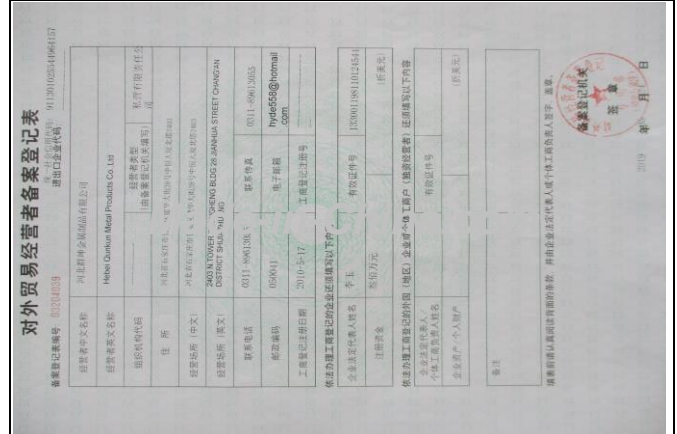 对外贸易经营者备案登记表
统一社会信用代码:
备案登记表编号: 03204039 进出口企业代码:
经营者中文名称 河北群坤金属制品有限公司
经营者英文名称 Hebei Qunkun Metal Products Co., Ltd
组织机构代码 经营者类型 (由备案登记机关填写) 私营有限责任公司
住 所
经营场所（中文）
经营场所（英文） 2403 N.TOWER GHENG BLDG 28 JIANHUA STREET CHANG'AN
DISTRICT SHIJI
联系电话 联系传真 0311-89613055
邮政编码 050041 电子邮箱 hyde558@hotmail.com
工商登记注册日期 2010-5-17 工商登记注册号
依法办理工商登记的企业还须填写以下内
企业法定代表人姓名 李玉 有效证件号
注册资金 叁佰万元 (折美元)
依法办理工商登记的外国（地区）企业或个体工商户（独资经营者）还须填写以下内容
企业法定代表人/
个体工商负责人姓名 有效证件号
企业资产/个人财产 (折美元)
备注
填表前请认真阅读背面的条款，并由企业法定代表人或个体工商负责人签字、盖章。
备案登记机关
签 章
年 月 日